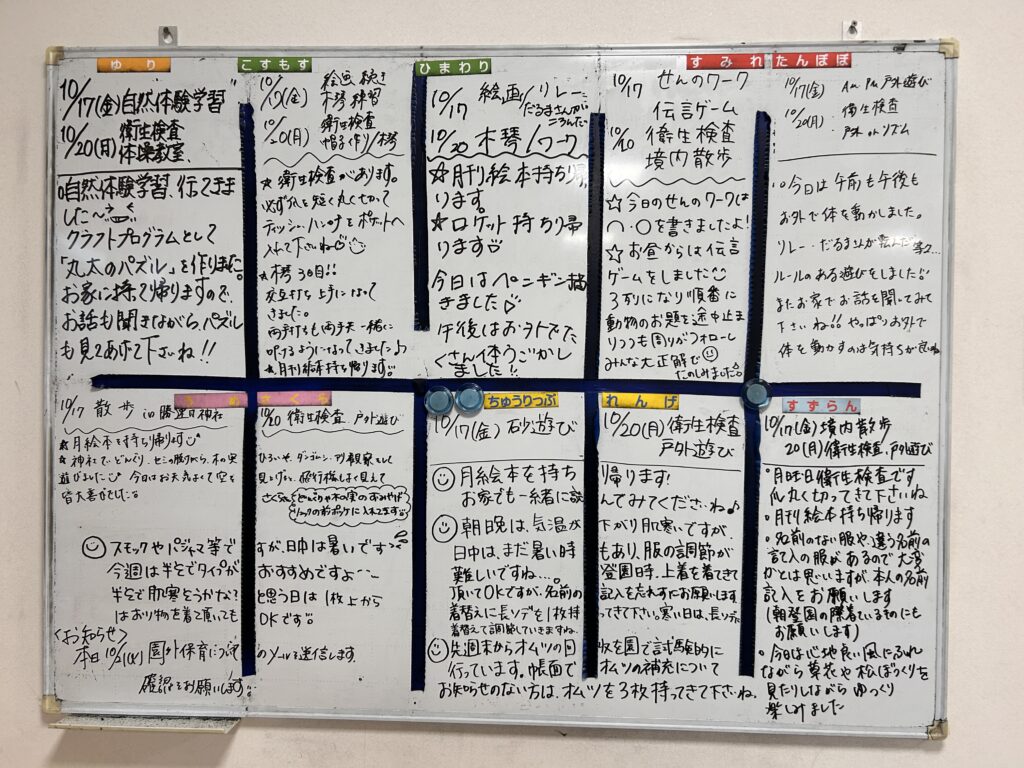 ゆり
10/17(金)自然体験学習
10/20(月) 衛生検査
体操教室
自然体験学習、行ってきま
した〜
クラフトプログラムとして
「丸太のパズル」を作りました。
お家に持って帰りますので、
お話も聞きながら、パズル
も見てあげて下さいね!!
こすもす
10/17(金) 絵画続き
木琴練習
10/20(月) 衛生検査
帽子作り/木琴
★衛生検査があります。
必ず爪を短く丸く切って
ティッシュ、ハンカチをポケットへ
入れて下さいね
★木琴3日目!!
交互打ち上手になって
きました。
両手打ちも両手夫一緒に
叩けるようになってきました♪
★月刊絵本持ち帰ります。
ひまわり
10/17 絵画/リレー
だるまさんが
ころんだ
10/20 木琴/ワーク
☆月刊絵本持ち帰
ります。
☆ロケット持ち帰
ります
今日はペンギン描
きました
午後はお外でた
くさん体うごかし
ました!!
すみれ
10/17 せんのワーク
伝言ゲーム
10/20 衛生検査
境内散歩
☆今日のせんのワークは
へ・〇を書きましたよ!
☆お昼からは伝言
ゲームをしました
3列になり順番に
動物のお題を途中止ま
りつつも周りがフォローし
みんな大正解で
たのしみました。
たんぽぽ
10/17(金) Am. Pm 戸外遊び
10/20(月) 衛生検査
戸外 or リズム
今日は午前も午後も
お外で体を動かしました。
リレー・だるまさんが転んだ等々
ルールのある遊びをしました
またお家でお話を聞いてみて
下さいね やっぱりお外で
体を動かすのは気持ちが良いね
うめ
10/17 散歩 in 勝運日神社
★月絵本を持ち帰ります
★神社で、どんぐり、セミの脱けがら、木の実
遊びました 今日はお天気よくて空を
皆大喜びでした
さくら
10/20 衛生検査、戸外遊び
ひろいや、ダンゴムシ、 観察として
見上げると、飛行機もよく見えて
さくらさん、どんぐりや木の実のおみやげ
リュックの前ポケに入れてます
スモックやパジャマ等で
今週は半そでタイプが
半そで肌寒そうかな?
はおり物を着て頂いても
すが、日中は暑いです
おすすめですよ
と思う日は1枚上から
OKです。
<お知らせ>
本日10/21(火) 園外保育について のメールを送信します。
確認をお願いします。
ちゅうりっぷ
10/17(金) 砂遊び
れんげ
10/20(月)衛生検査
戸外遊び
月絵本を持ち 帰ります!
お家でも一緒に読 んでみてくださいね♪
朝晩は、気温が 下がり肌寒いですが、
日中は、まだ暑い時 もあり、服の調節が
難しいですね…。 登園日時、上着を着てきて
頂いてOKですが、名前の 記入を忘れずにお願いします
着替えに長ソデを1枚持 ってきて下さい。寒い日は、長ソデに
着替えて調節していきますね。
先週末からオムツの回 収を園で試験的に
行っています。帳面で オムツの補充について
お知らせのない方は、オムツを3枚持ってきて下さいね。
すずらん
10/17(金)境内散歩
20(月)衛生検査、戸外遊び
・月曜日衛生検査です
爪丸く切ってきて下さいね
・月刊絵本持ち帰ります
・名前のない服や、違う名前の
記入の服があるので大変
かとは思いますが、本人の名前
記入をお願いします
(朝登園の際着ているものにも
お願いします)
・今日は心地良い風にふれ
ながら草花や松ぼっくりを
見たりしながら ゆっくり
楽しみました